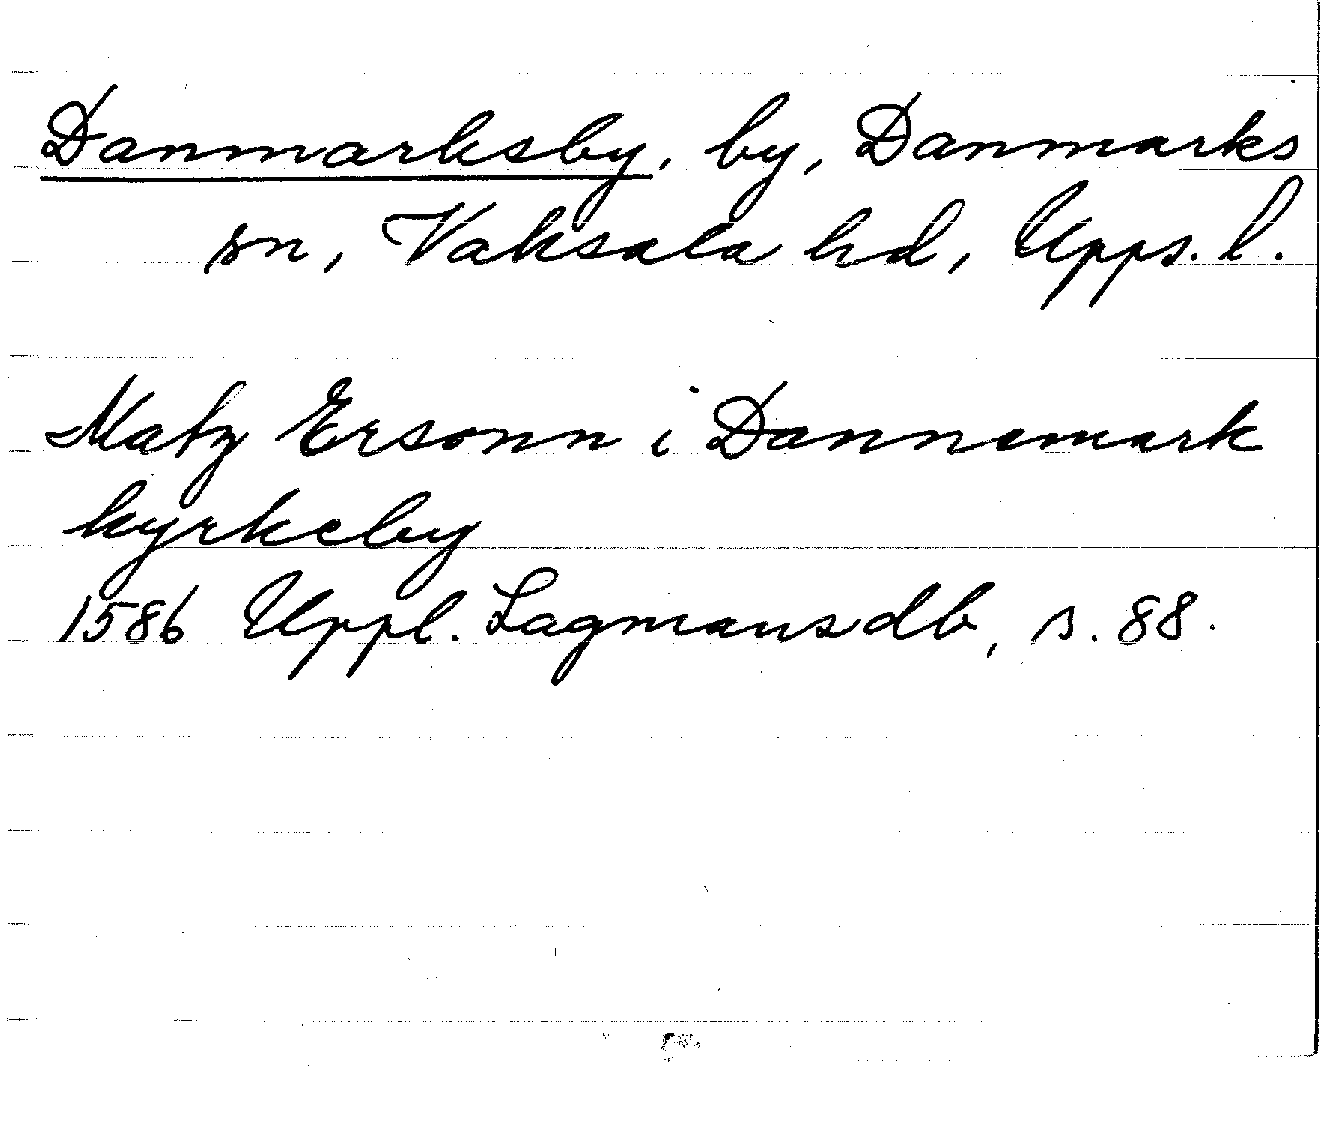 Danmarksby, by, Danmarks
sn, Vaksala hd, Upps. l.
Matz Ersonn i Dannemark
kyrkeby
1586 Uppl. Lagmansdb, s. 88.